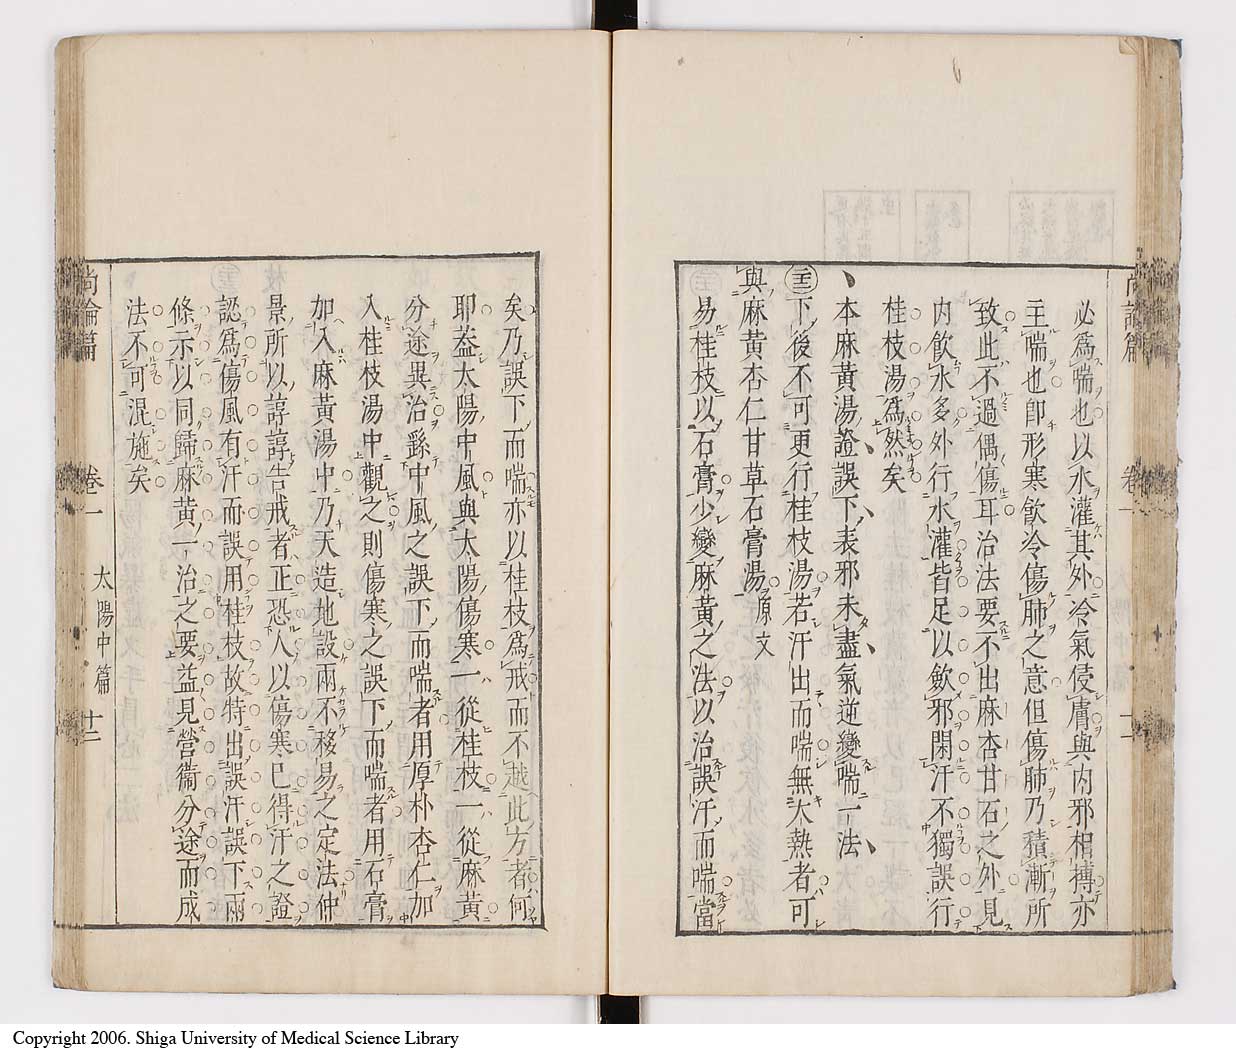 必爲喘也以水灌其外冷氣侵膚與内邪相搏亦
主喘也卽形寒飮冷傷肺之意但傷肺乃積漸所
致此不過偶傷耳治法要不出麻杏甘石之外見
内飮水多外行水灌皆足以歛邪閉汗不獨誤行
桂枝湯爲然矣
本麻黃湯證誤下表邪未盡氣逆變喘一法
下後不可更行桂枝湯若汗出而喘無大熱者可
與麻黃杏仁甘草石膏湯原文
易桂枝以石膏少變麻黃之法以治誤汗而喘當
矣乃誤下而喘亦以桂枝爲戒而不越此方者何
耶葢太陽中風與太陽傷寒一從桂枝一從麻黃
分途異治繇中風之誤下而喘者用厚朴杏仁加
入桂枝湯中觀之則傷寒之誤下而喘者用石膏
加入麻黃湯中乃天造地設兩不移易之定法仲
景所以諄諄告戒者正恐人以傷寒已得汗之證
認爲傷風有汗而誤用桂枝故特出誤汗誤下兩
條示以同歸麻黃一治之要益見營衞分途而成
法不可混施矣
尚論篇 卷一 太陽中篇 十二
Copyright 2006. Shiga University of Medical Science Library